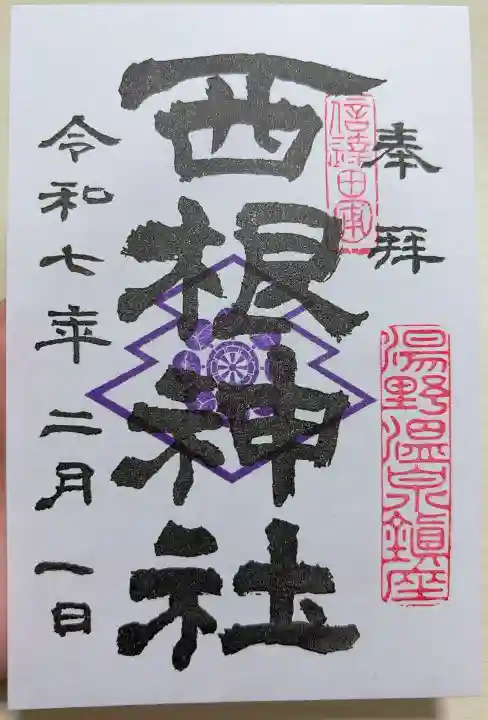 奉拝
湯野温泉鎮座
西根神社
令和七年 二月 一日